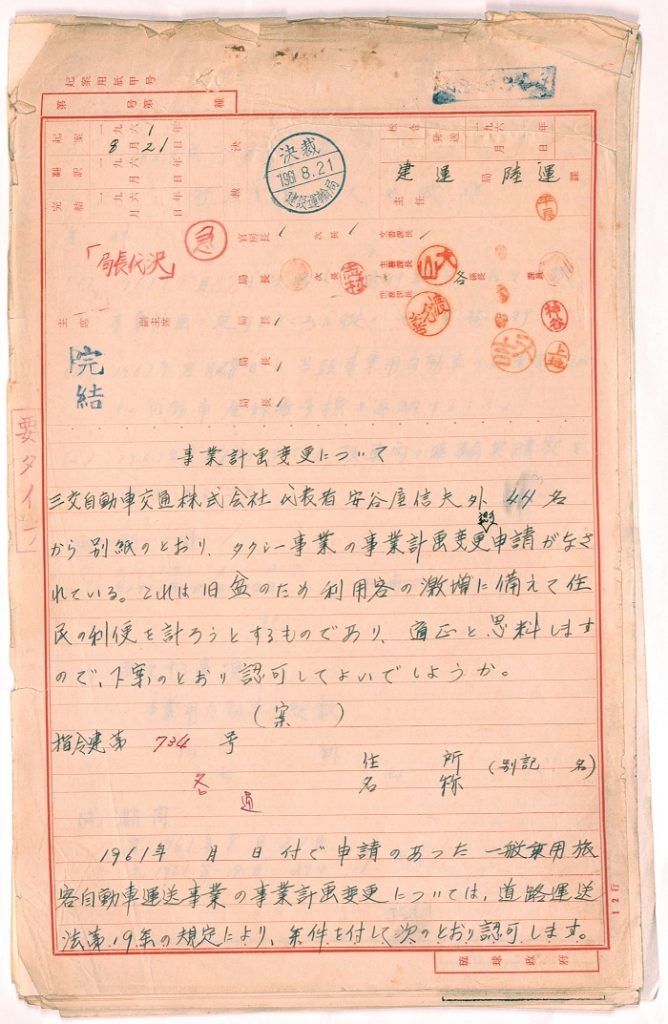 起案用紙甲号
第 号第 種
起案 一九六1年8月21日
翻訳 一九六 年 月 日
完結 一九六 年 月 日
決裁
決裁
1961.8.21
建設運輸局
校合
発送 一九六 年 月 日
建運局 陸運課
主任
平良
急
「局長代決」
官房長
次長
文書課長
局長
次長
主管課長
各係長
課員
神谷
主席
副主席
局長
局長
局長
完結
要タイプ
事業計画変更について
三交自動車交通株式会社 代表者 安谷屋信夫外 44名
から別紙のとおり、タクシー事業の事業計画変更申請がなさ
れている。これは旧盆のため利用客の激増に備えて住
民の利便を計ろうとするものであり、適正と思料します
ので、下案のとおり認可してよいでしようか。
(案)
指令建第 734 号
住所
名称
(別記 名)
各通
1961年 月 日付で申請のあつた一般乗用旅
客自動車運送事業の事業計画変更については、道路運送
法第19条の規定により、条件を付して次のとおり認可します。
12行
琉球政府